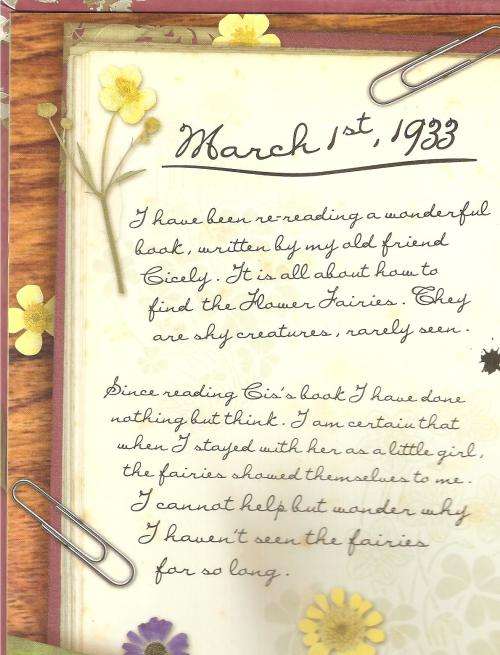 March 1st, 1933
I have been re-reading a wonderful
book, written by my old friend
Cicely. It is all about how to
find the Flower Fairies. They
are shy creatures, rarely seen.
Since reading Cis's book I have done
nothing but think. I am certain that
when I stayed with her as a little girl,
the fairies showed themselves to me.
I cannot help but wonder why
I haven't seen the fairies
for so long.